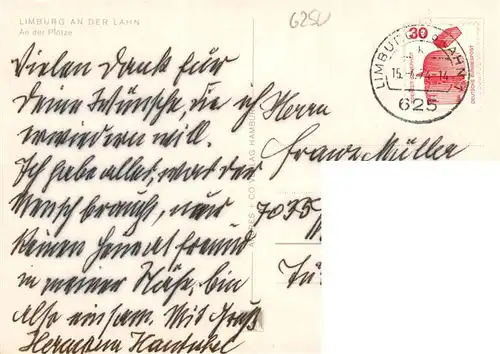 LIMBURG AN DER LAHN
An der Plötze
6250
Vielen Dank für
Deine Wünsche, die ich
erwiedern will.
Ich habe alles, was der
Mensch braucht, nur
keinen
in meiner Nähe, bin
also einsam. Mit Gruß
Hermann
Herrn
Franz Müller
7035
LIMBURG
15
-14
625
30
DEUTSCHE BUNDESPOST